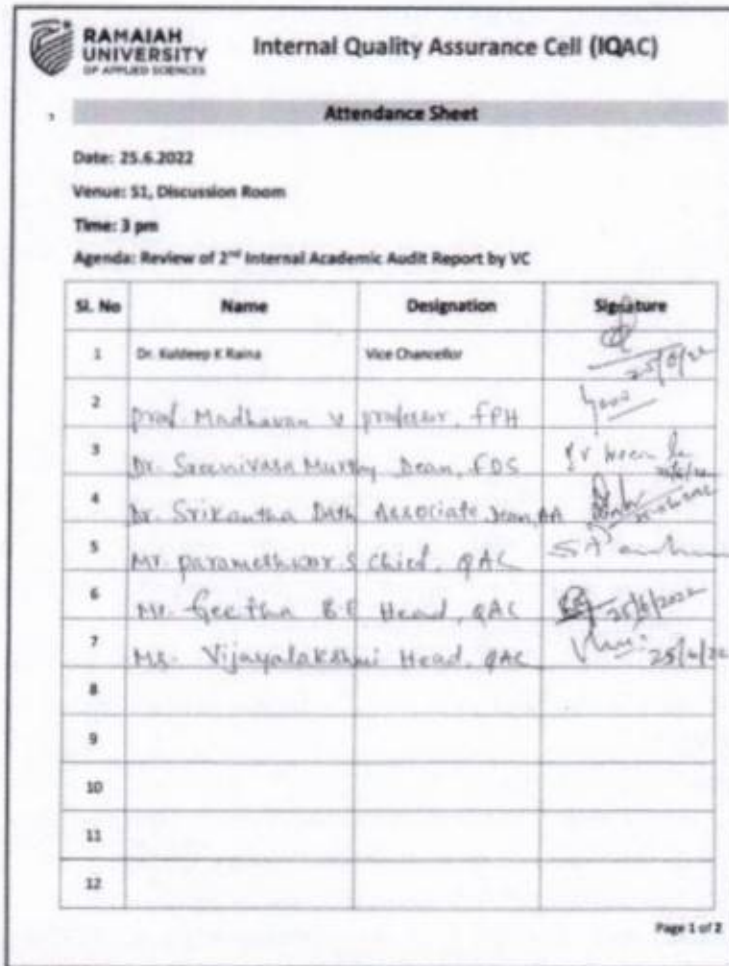 RAMAIAH
UNIVERSITY
OF APPLIED SCIENCES
Internal Quality Assurance Cell (IQAC)
Attendance Sheet
Date: 25.6.2022
Venue: S1, Discussion Room
Time: 3 pm
Agenda: Review of 2nd Internal Academic Audit Report by VC
Sl. No Name Designation Signature
1 Dr. Kuldeep K Raina Vice Chancellor 25/6/22
2 Prof. Madhavan V professor, FPH
3 Dr. Sreenivasa Murthy Dean, FDS
4 Dr. Srikantha Associate Dean
5 Mr. Parameshwar S Chief, QAC
6 Ms. Geetha B E Head, QAC 25/6/2022
7 Ms. Vijayalakshmi Head, QAC 25/6/22
8
9
10
11
12
Page 1 of 2